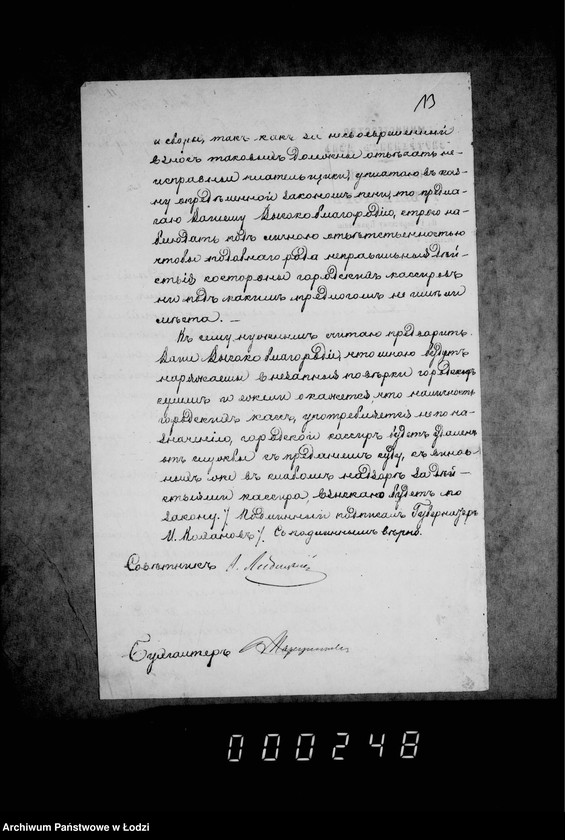 13
и сборы, такъ какъ за несвоевременный
взносъ таковыхъ должны отвѣчать не-
исправные плательщики, уплатою въ каз-
ну опредѣленной закономъ пени, то предла-
гаю Вашему Высокоблагородію, строго на-
блюдать подъ личною отвѣтственностью
чтобы подобнаго рода неправильныя дѣй-
ствія со стороны городскихъ кассировъ
ни подъ какимъ предлогомъ не имѣли
мѣста. —
Къ сему нужнымъ считаю предварить
Ваше Высокоблагородіе, что мною будутъ
наряжаемы внезапныя повѣрки городскихъ
суммъ и если окажется, что наличность
городскихъ кассъ, употребляется не по на-
значенію, городской кассиръ будетъ удаленъ
отъ службы съ преданіемъ суду, съ винов-
ныхъ же въ слабомъ надзорѣ за дѣй-
ствіями кассира, взыскано будетъ по
закону. /. Подлинный подписалъ Губернаторъ
И. Кахановъ /. Съ подлиннымъ вѣрно.
Совѣтникъ
Бухгалтеръ
000248
Archiwum Państwowe w Łodzi